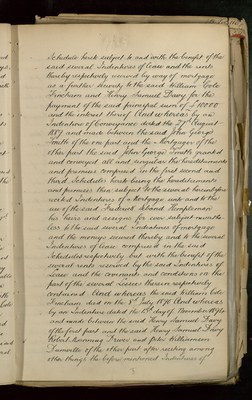 Schedule hereto subject to and with the benefit of the
said several Indentures of lease and the rents
thereby respectively reserved by way of mortgage
as a further security to the said William Cole
Pinchin and Henry Samuel Davy for the
payment of the said principal sum of £10000
and the interest thereof And whereas by an
Indenture of Conveyance dated the 27th August
1889 and made between the said John George
Smith of the one part and the Mortgagor of the
other part the said John George Smith granted
and conveyed all and singular the hereditaments
and premises comprised in the first second and
third Schedules hereto being the hereditaments
and premises then subject to the several hereinbefore
recited Indentures of Mortgage unto and to the
use of the said Frederick Roland
his heirs and assigns for ever subject nevertheless
to the said several Indentures of mortgage
and the moneys secured thereby and to the several
Indentures of lease comprised in the said
Schedules respectively but with the benefit of the
several rents reserved by the said Indentures of
lease and the covenants and conditions on the
part of the several lessees therein respectively
contained And whereas the said William Cole
died on the 1st July 1890 And whereas
by an Indenture dated the 15th day of November 1890
and made between the said Henry Samuel Davy
of the first part and the said Henry Samuel Davy
Robert and John Williamson
of the other part after reciting among
other things the before mentioned Indentures of